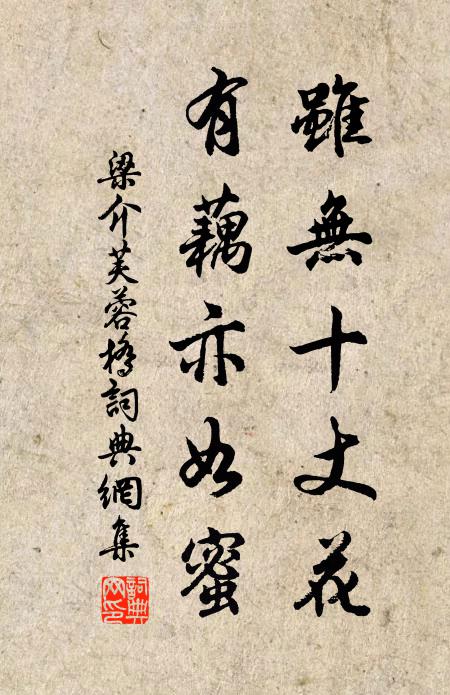 雖無十丈花
有藕亦如蜜
梁介芙蓉橋詞典網集
詞典
網印